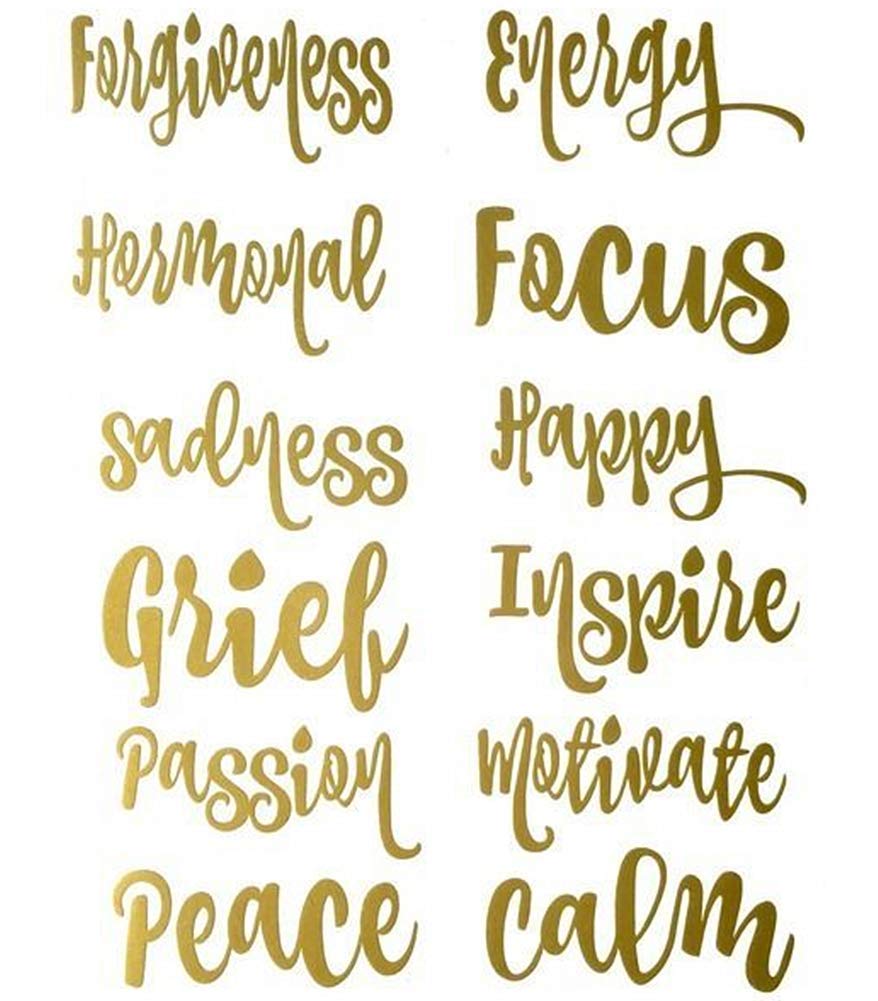 Forgiveness Energy
Hormonal Focus
sadness Happy
Grief Inspire
Passion Motivate
Peace Calm